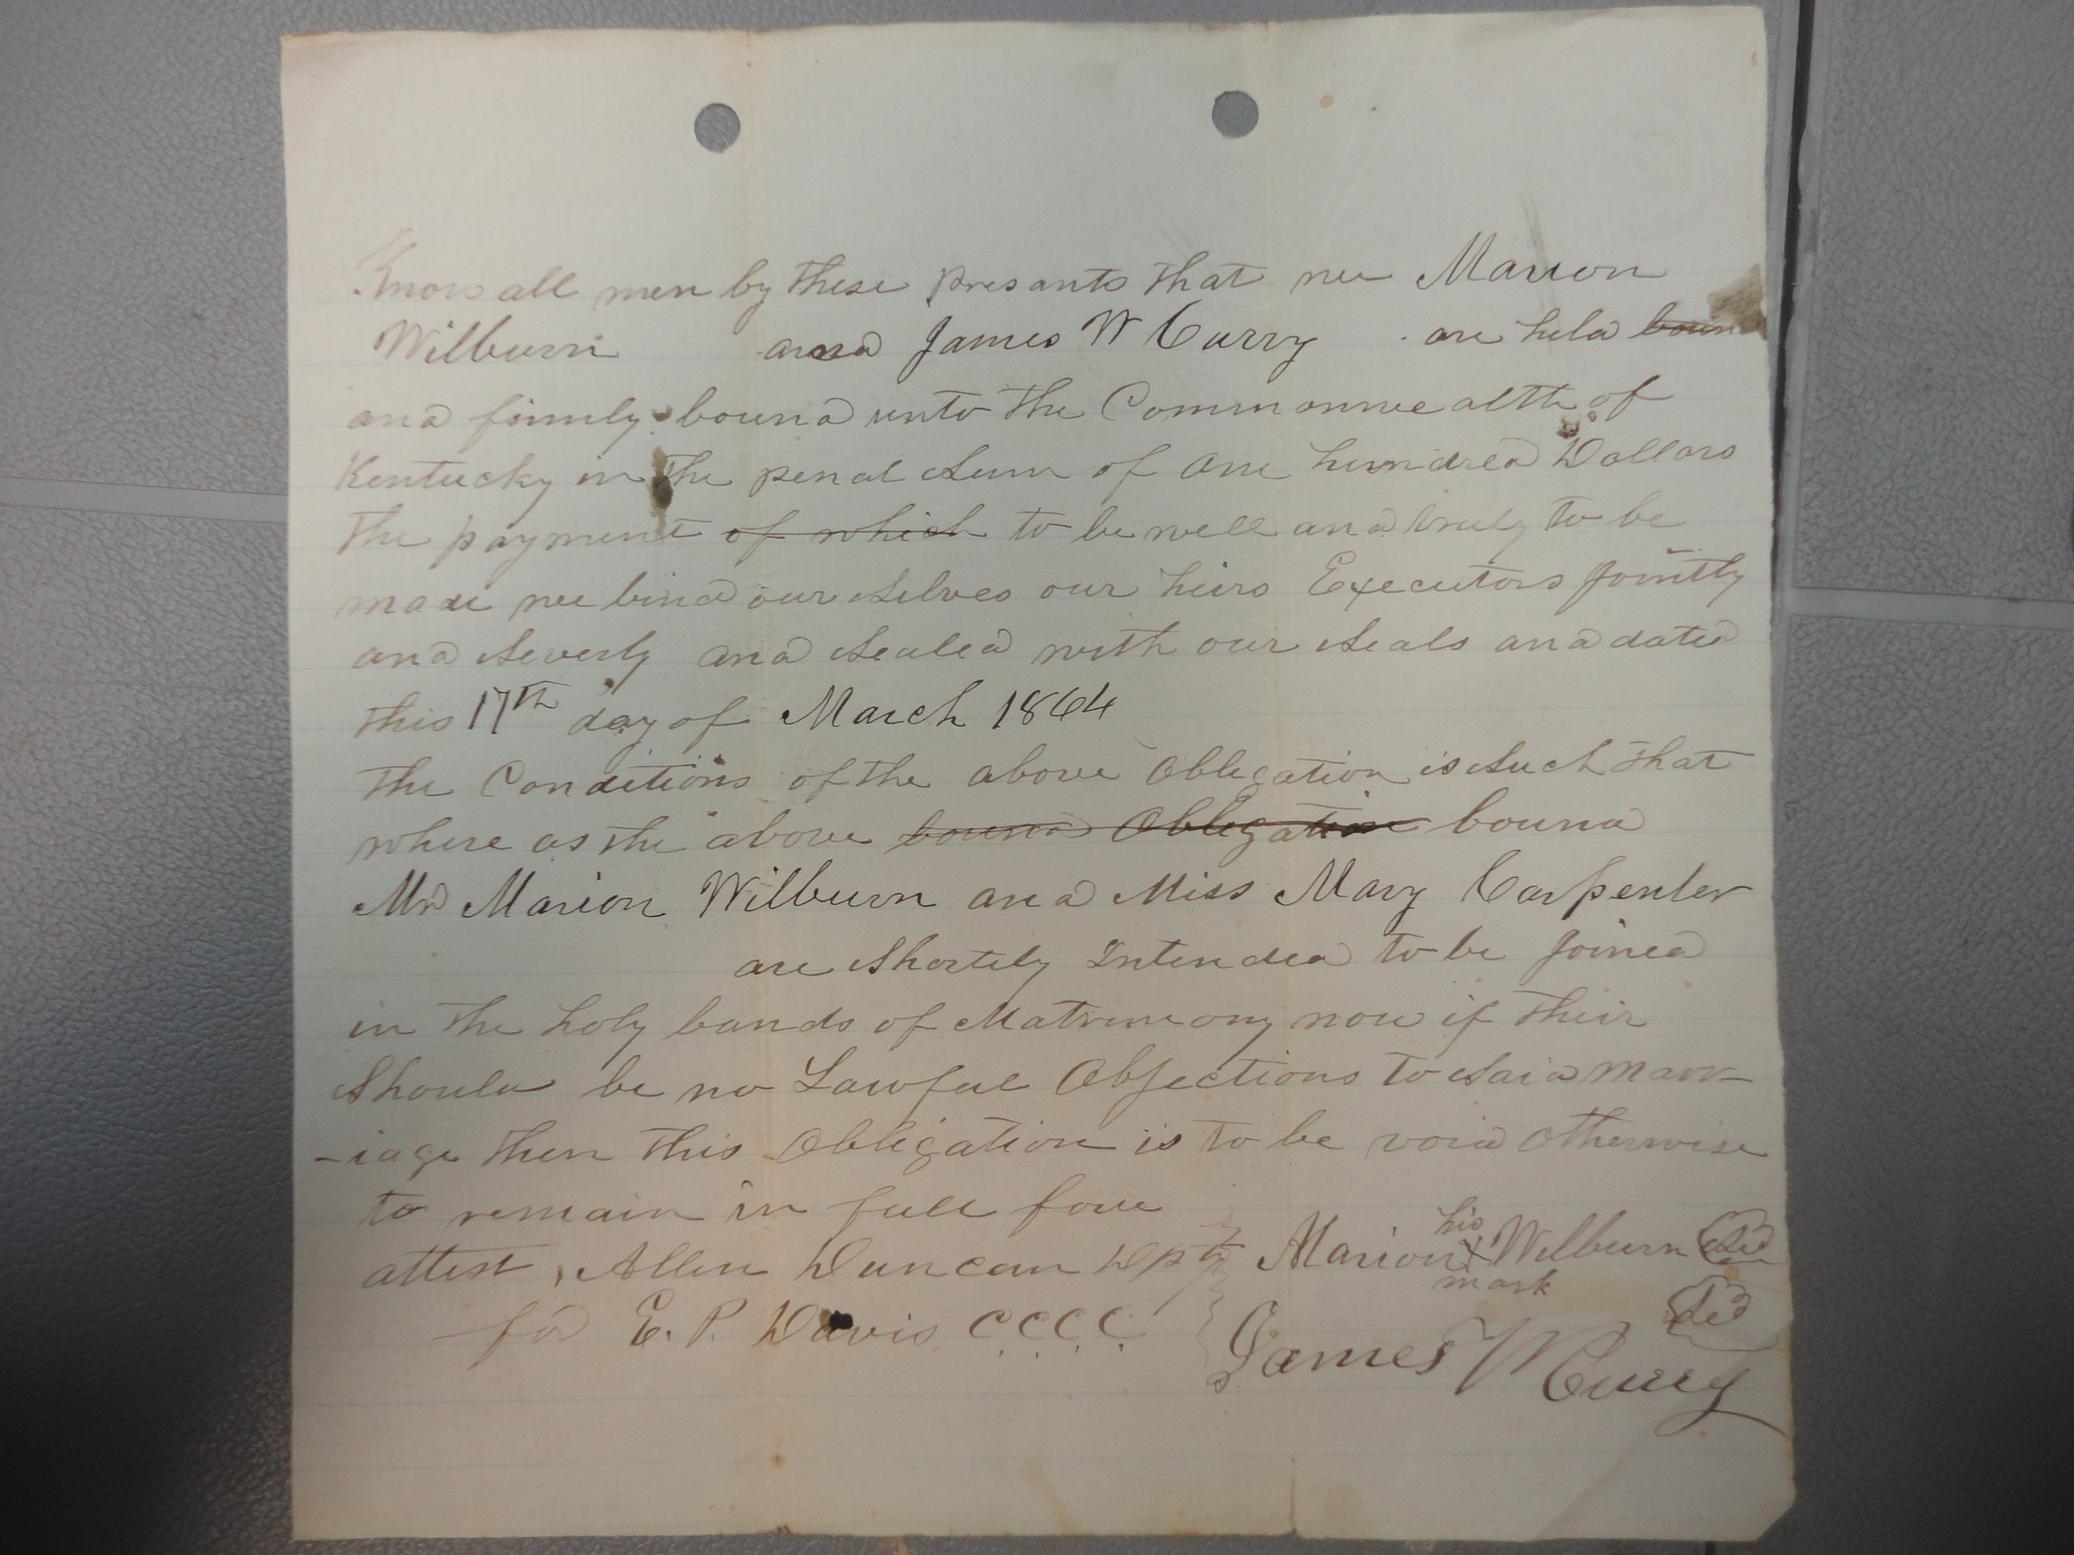 Know all men by these presants that we Marion
Wilburn and James W Curry are held boun
and firmly bound unto the Commonwealth of
Kentucky in the penal Sum of One hundred Dollars
the payment of which to be well and truly to be
made we bind our selves our heirs Executors Jointly
and Severly and Sealed with our Seals and dated
this 17th day of March 1864
the Conditions of the above Obligation is Such that
where as the above bound Obligation bound
Mr Marion Wilburn and Miss Mary Carpenter
are Shortely Intended to be Joined
in the holy bands of Matrimony now if their
Should be no Lawful Objections to Said marr-
-iage then this Obligation is to be void otherwise
to remain in full force
attest, Allen Duncan Dpty Marion his X mark Wilburn
for E. P. Davis C.C.C.C. James W Curry